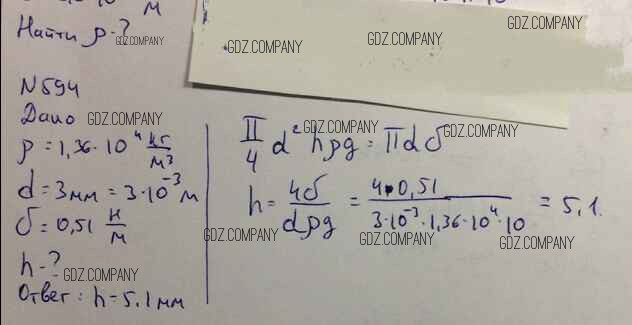 м
Найти ρ-?
GDZ.COMPANY
GDZ.COMPANY
GDZ.COMPANY
GDZ.COMPANY
N594
Дано
GDZ.COMPANY
ρ = 1,36·10⁴ кг/м³
d = 3мм = 3·10⁻³ м
σ = 0,51 н/м
h-?
GDZ.COMPANY
Ответ: h = 5.1 мм
π/4 d² hρg = πdσ
GDZ.COMPANY
GDZ.COMPANY
h = 4σ/dρg = 4·0,51/3·10⁻³·1,36·10⁴·10 = 5,1.
GDZ.COMPANY
GDZ.COMPANY
GDZ.COMPANY